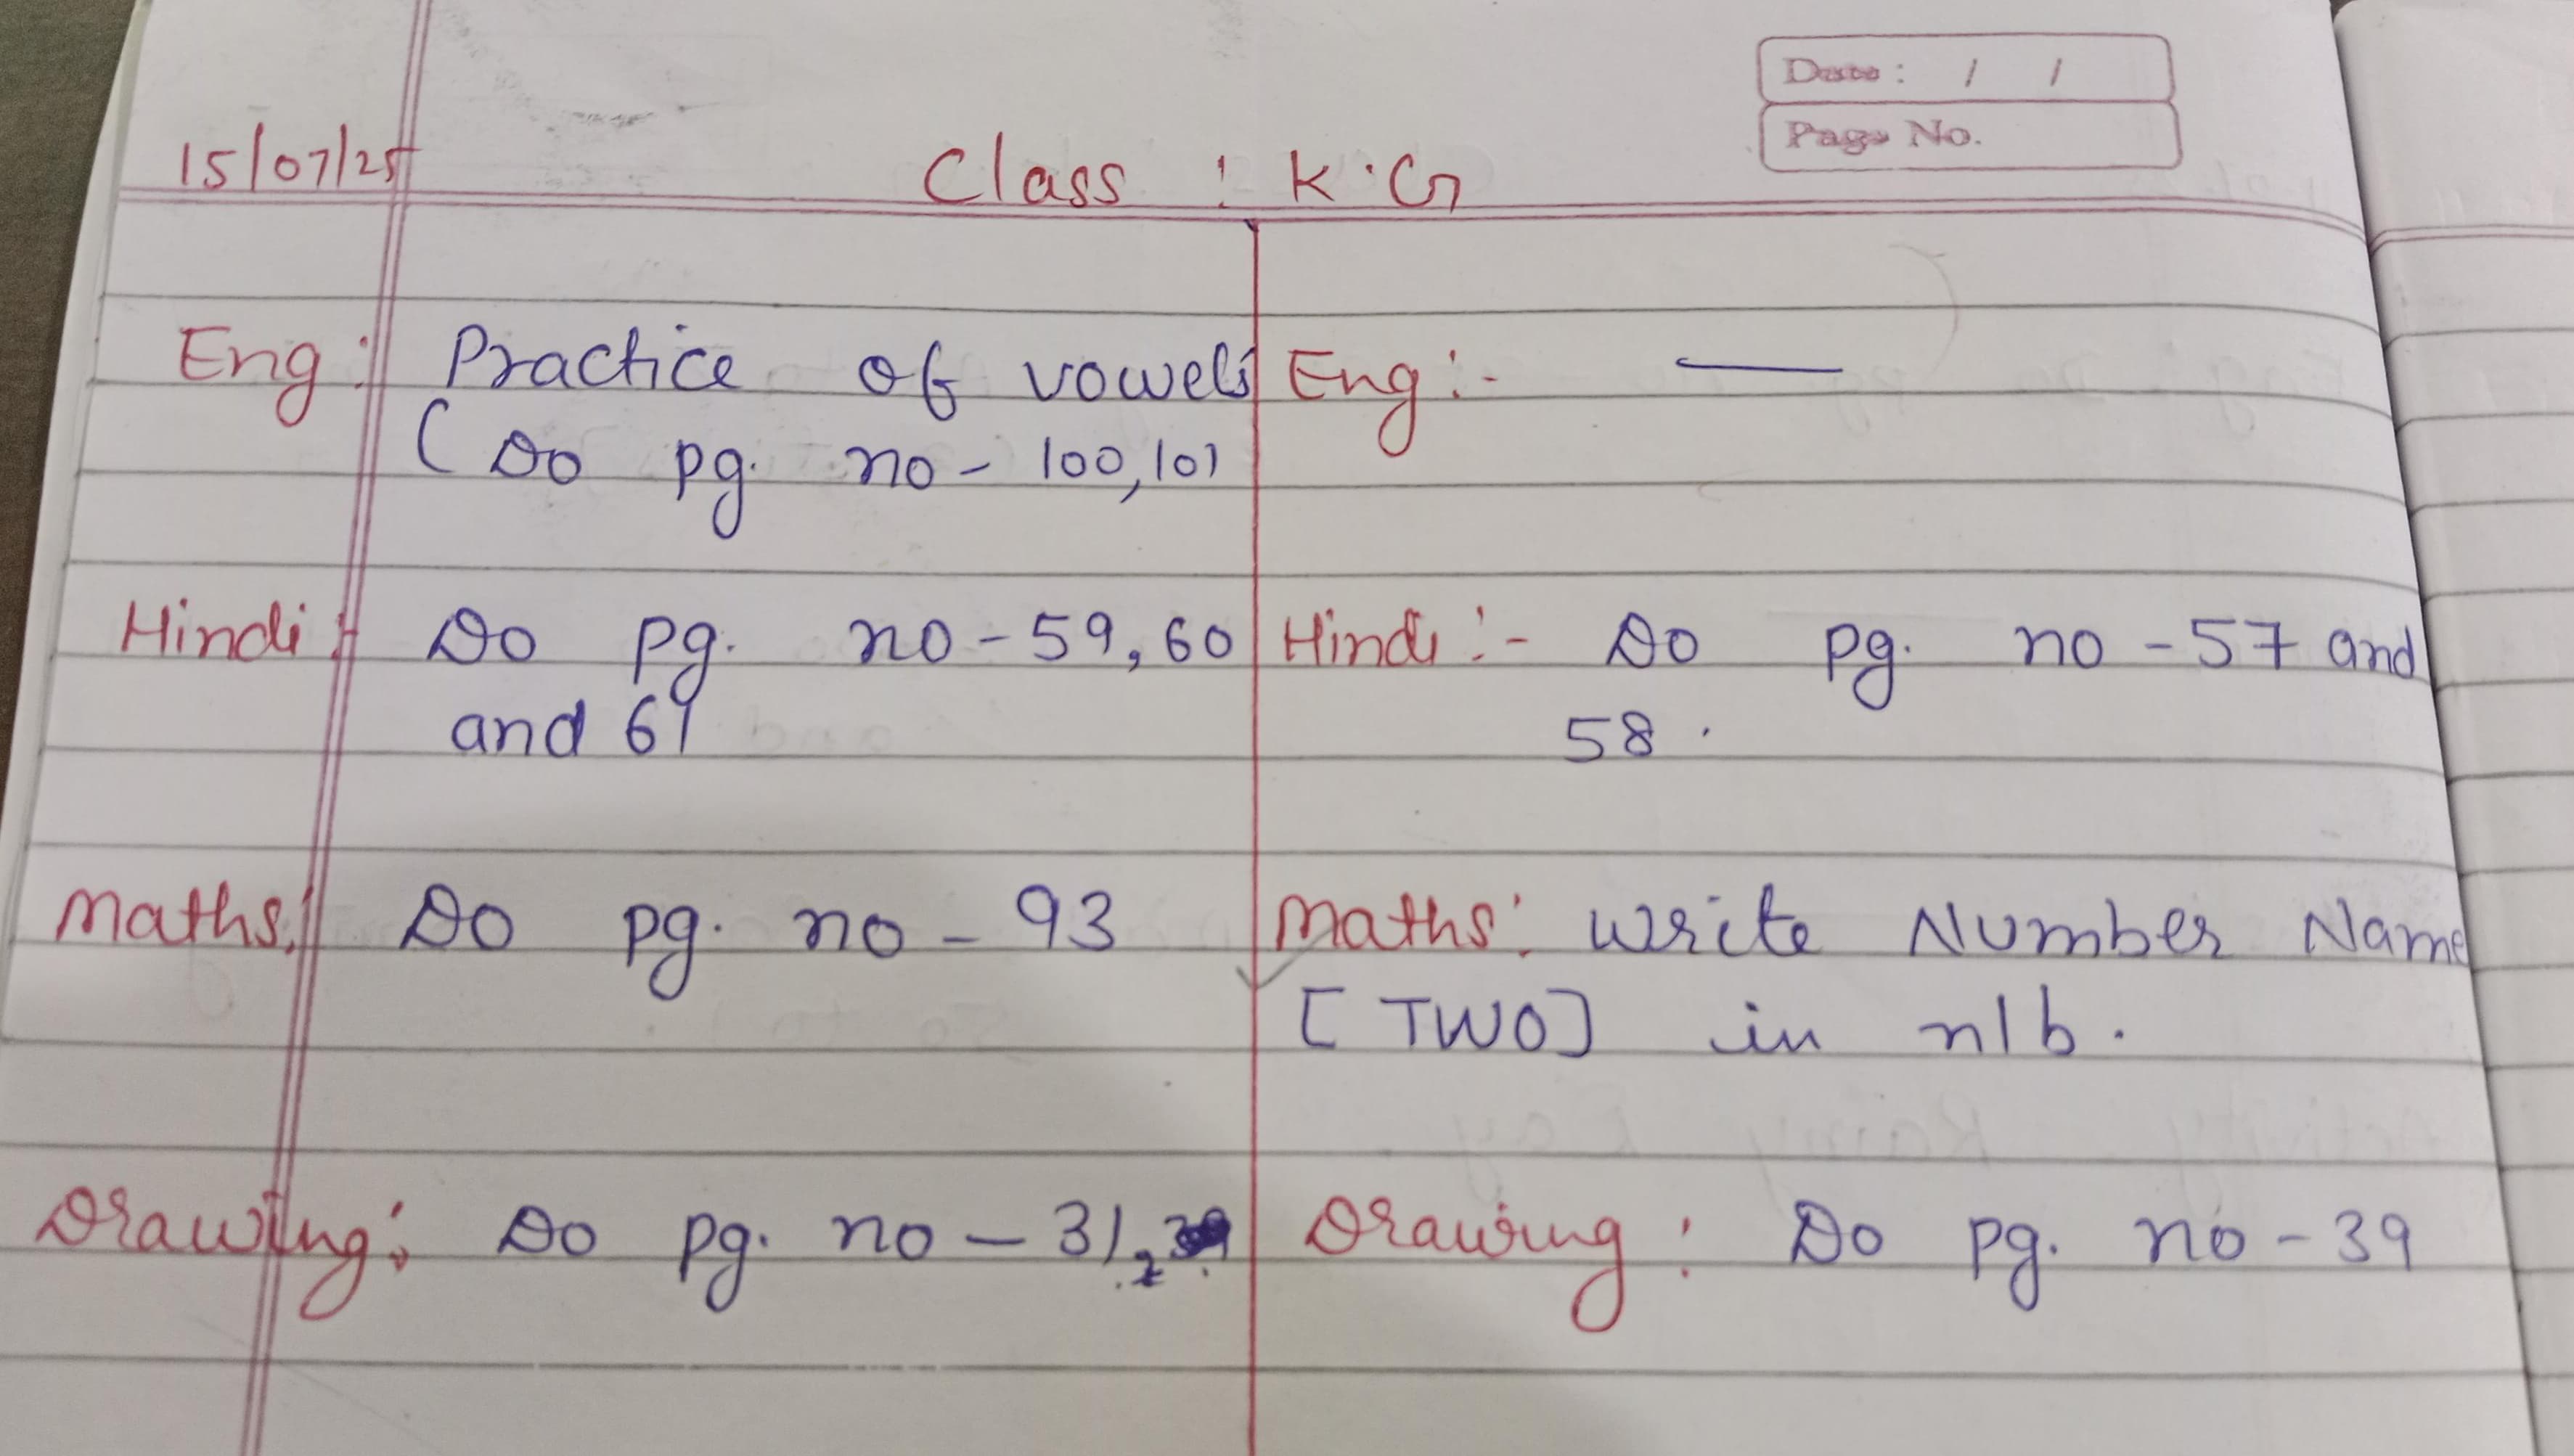 Date: / /
Page No.
15/07/25 Class : K.G
Eng: Practice of vowels
(Do pg. no - 100,101
Hindi :- Do pg. no - 59, 60
and 61
Maths: Do pg. no - 93
Drawing: Do pg. no - 31,
Eng :- —
Hindi :- Do pg. no - 57 and
58.
Maths: Write Number Name
[TWO] in n/b.
Drawing : Do pg. no - 39